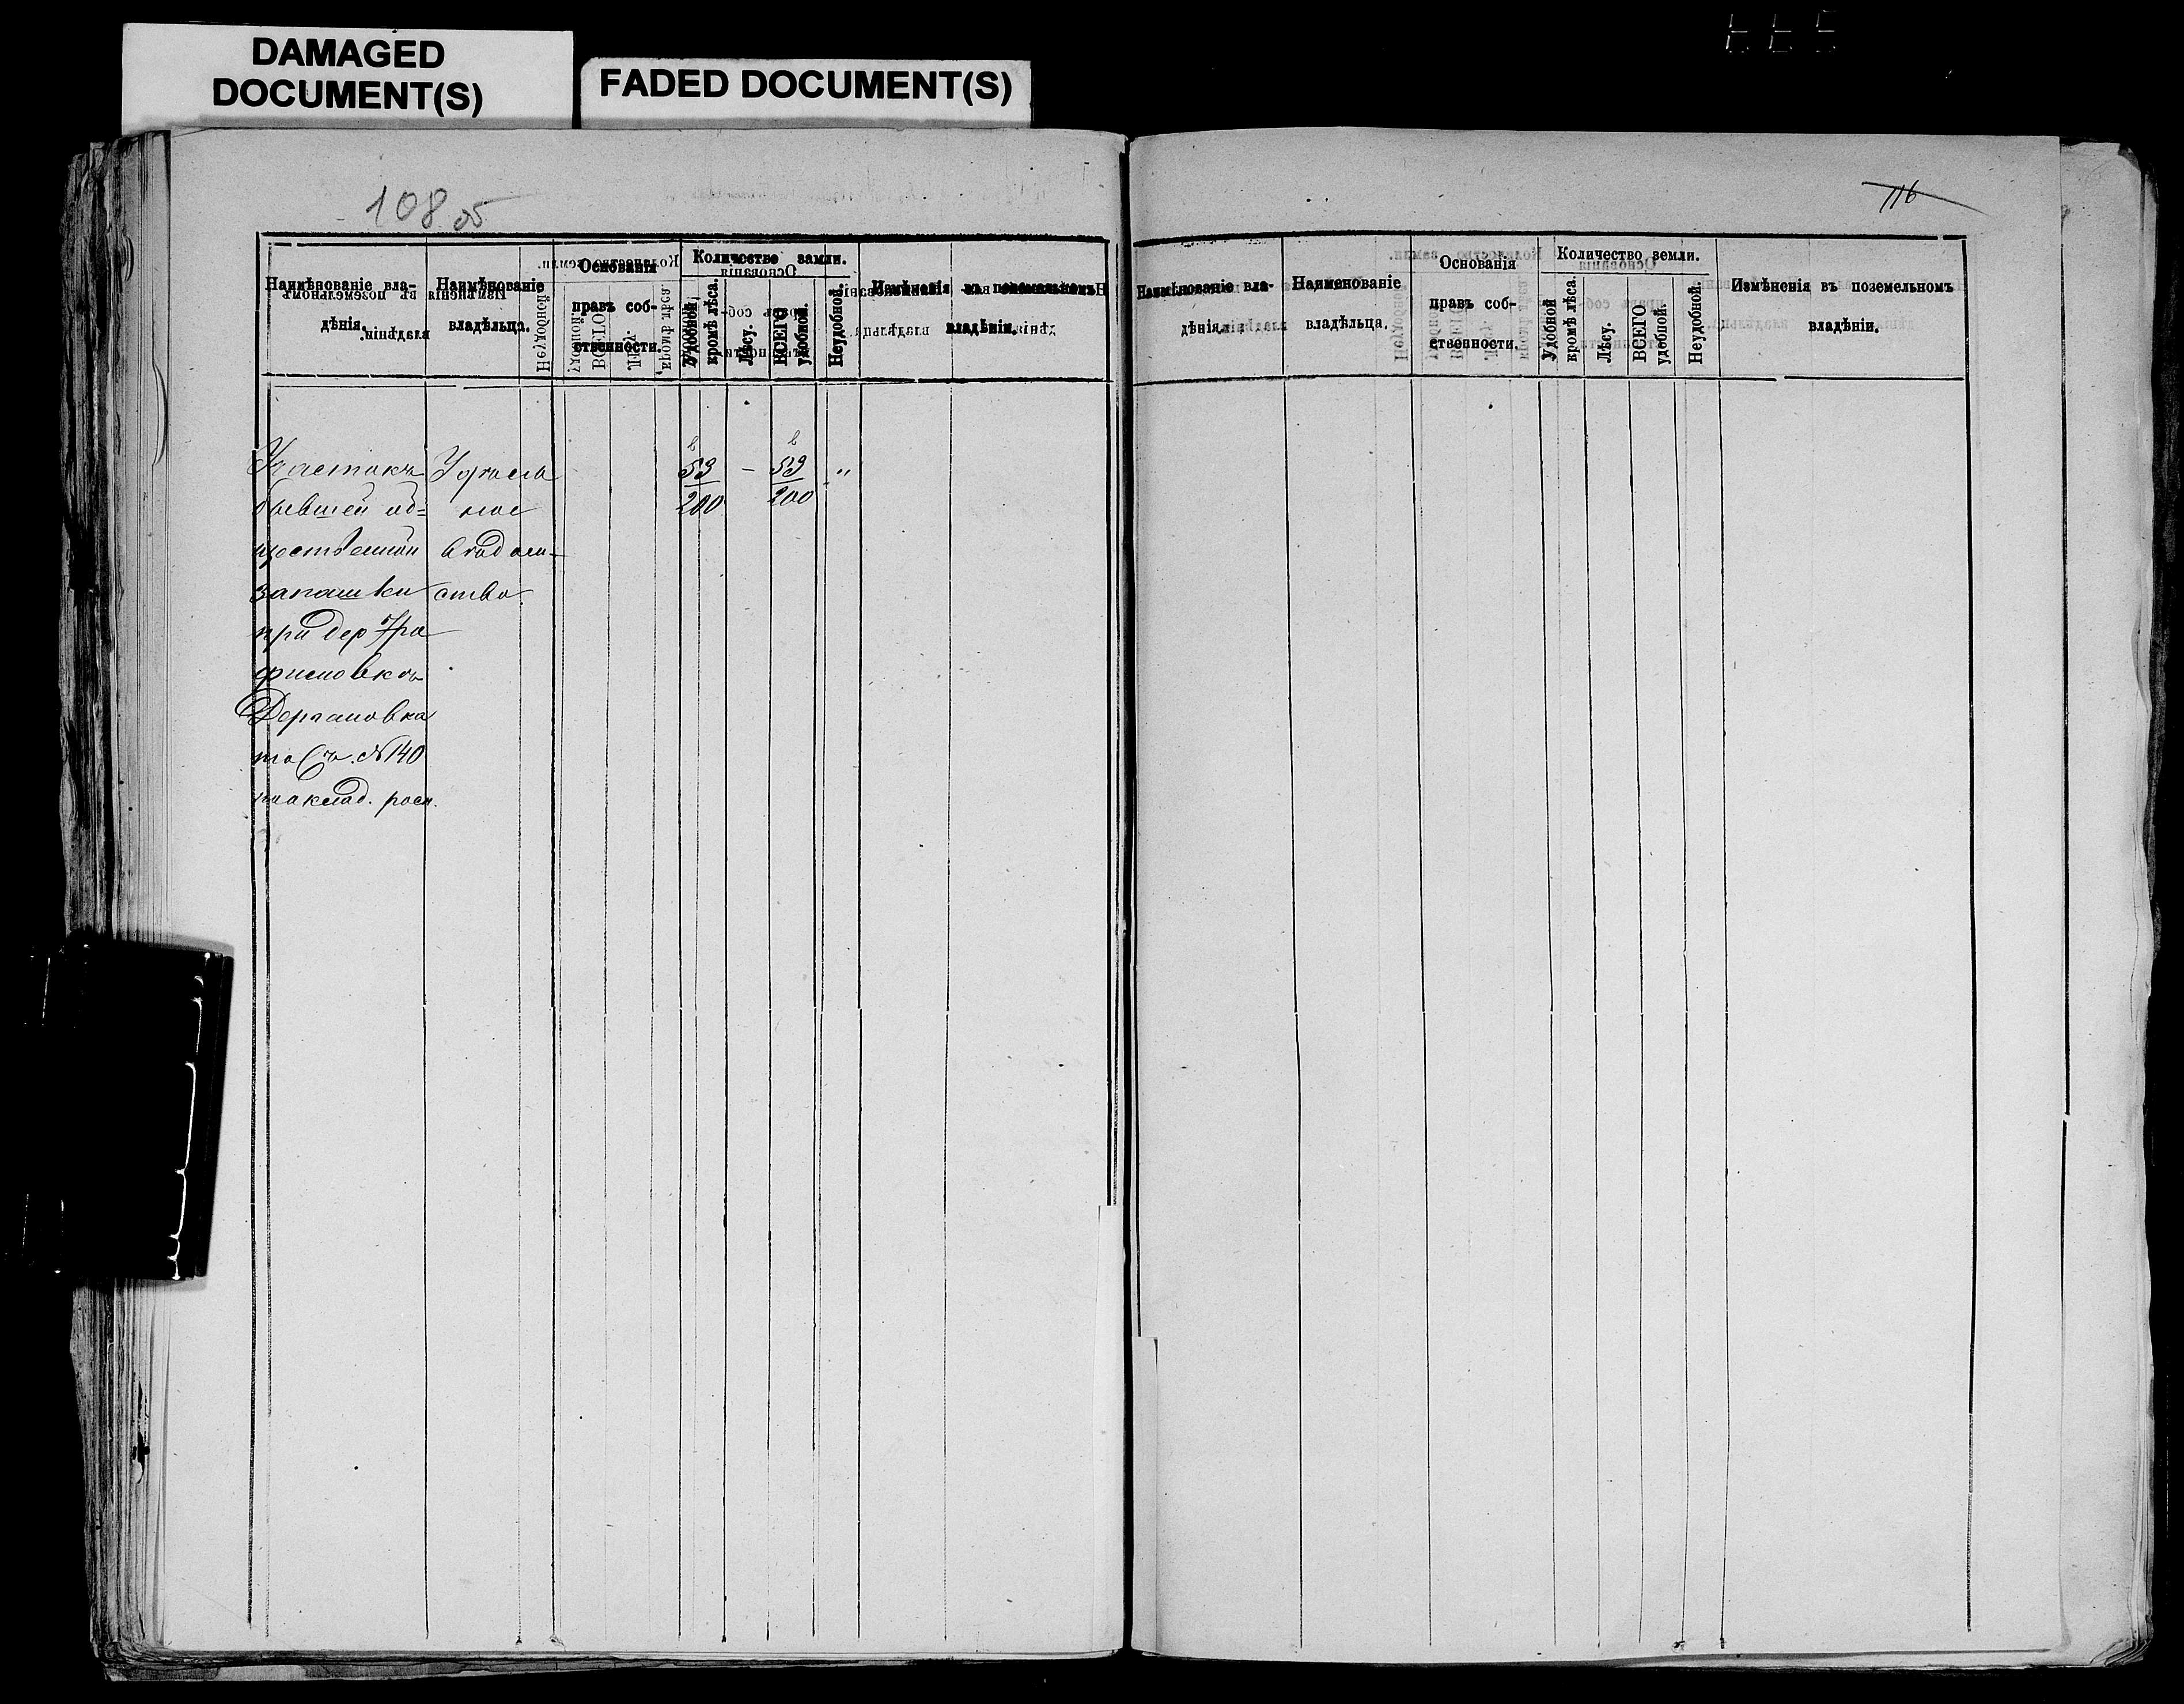 DAMAGED
DOCUMENT(S)
FADED DOCUMENT(S)
108 об
Наименѣвованіе вла-
дѣнія.
Наимѣнованіе
владѣльца.
Основанія
правъ соб-
ственности.
Количество земли.
Удобной,
кромѣ лѣса.
Лѣсу.
ВСЕГО
удобной.
Неудобной.
Измѣненія въ поземельномъ
владѣніи.
Участокъ
бывшей об=
щественной
запашки
при дер
Дергановка
тожъ. №140
оклад. росп.
Удѣль
ное
вѣдом-
ство
53
200
—
53
200
"
116
Наименованіе вла-
дѣнія.
Наименованіе
владѣльца.
Основанія
правъ соб-
ственности.
Количество земли.
Удобной
кромѣ лѣса.
Лѣсу.
ВСЕГО
удобной.
Неудобной.
Измѣненія въ поземельномъ
владѣніи.